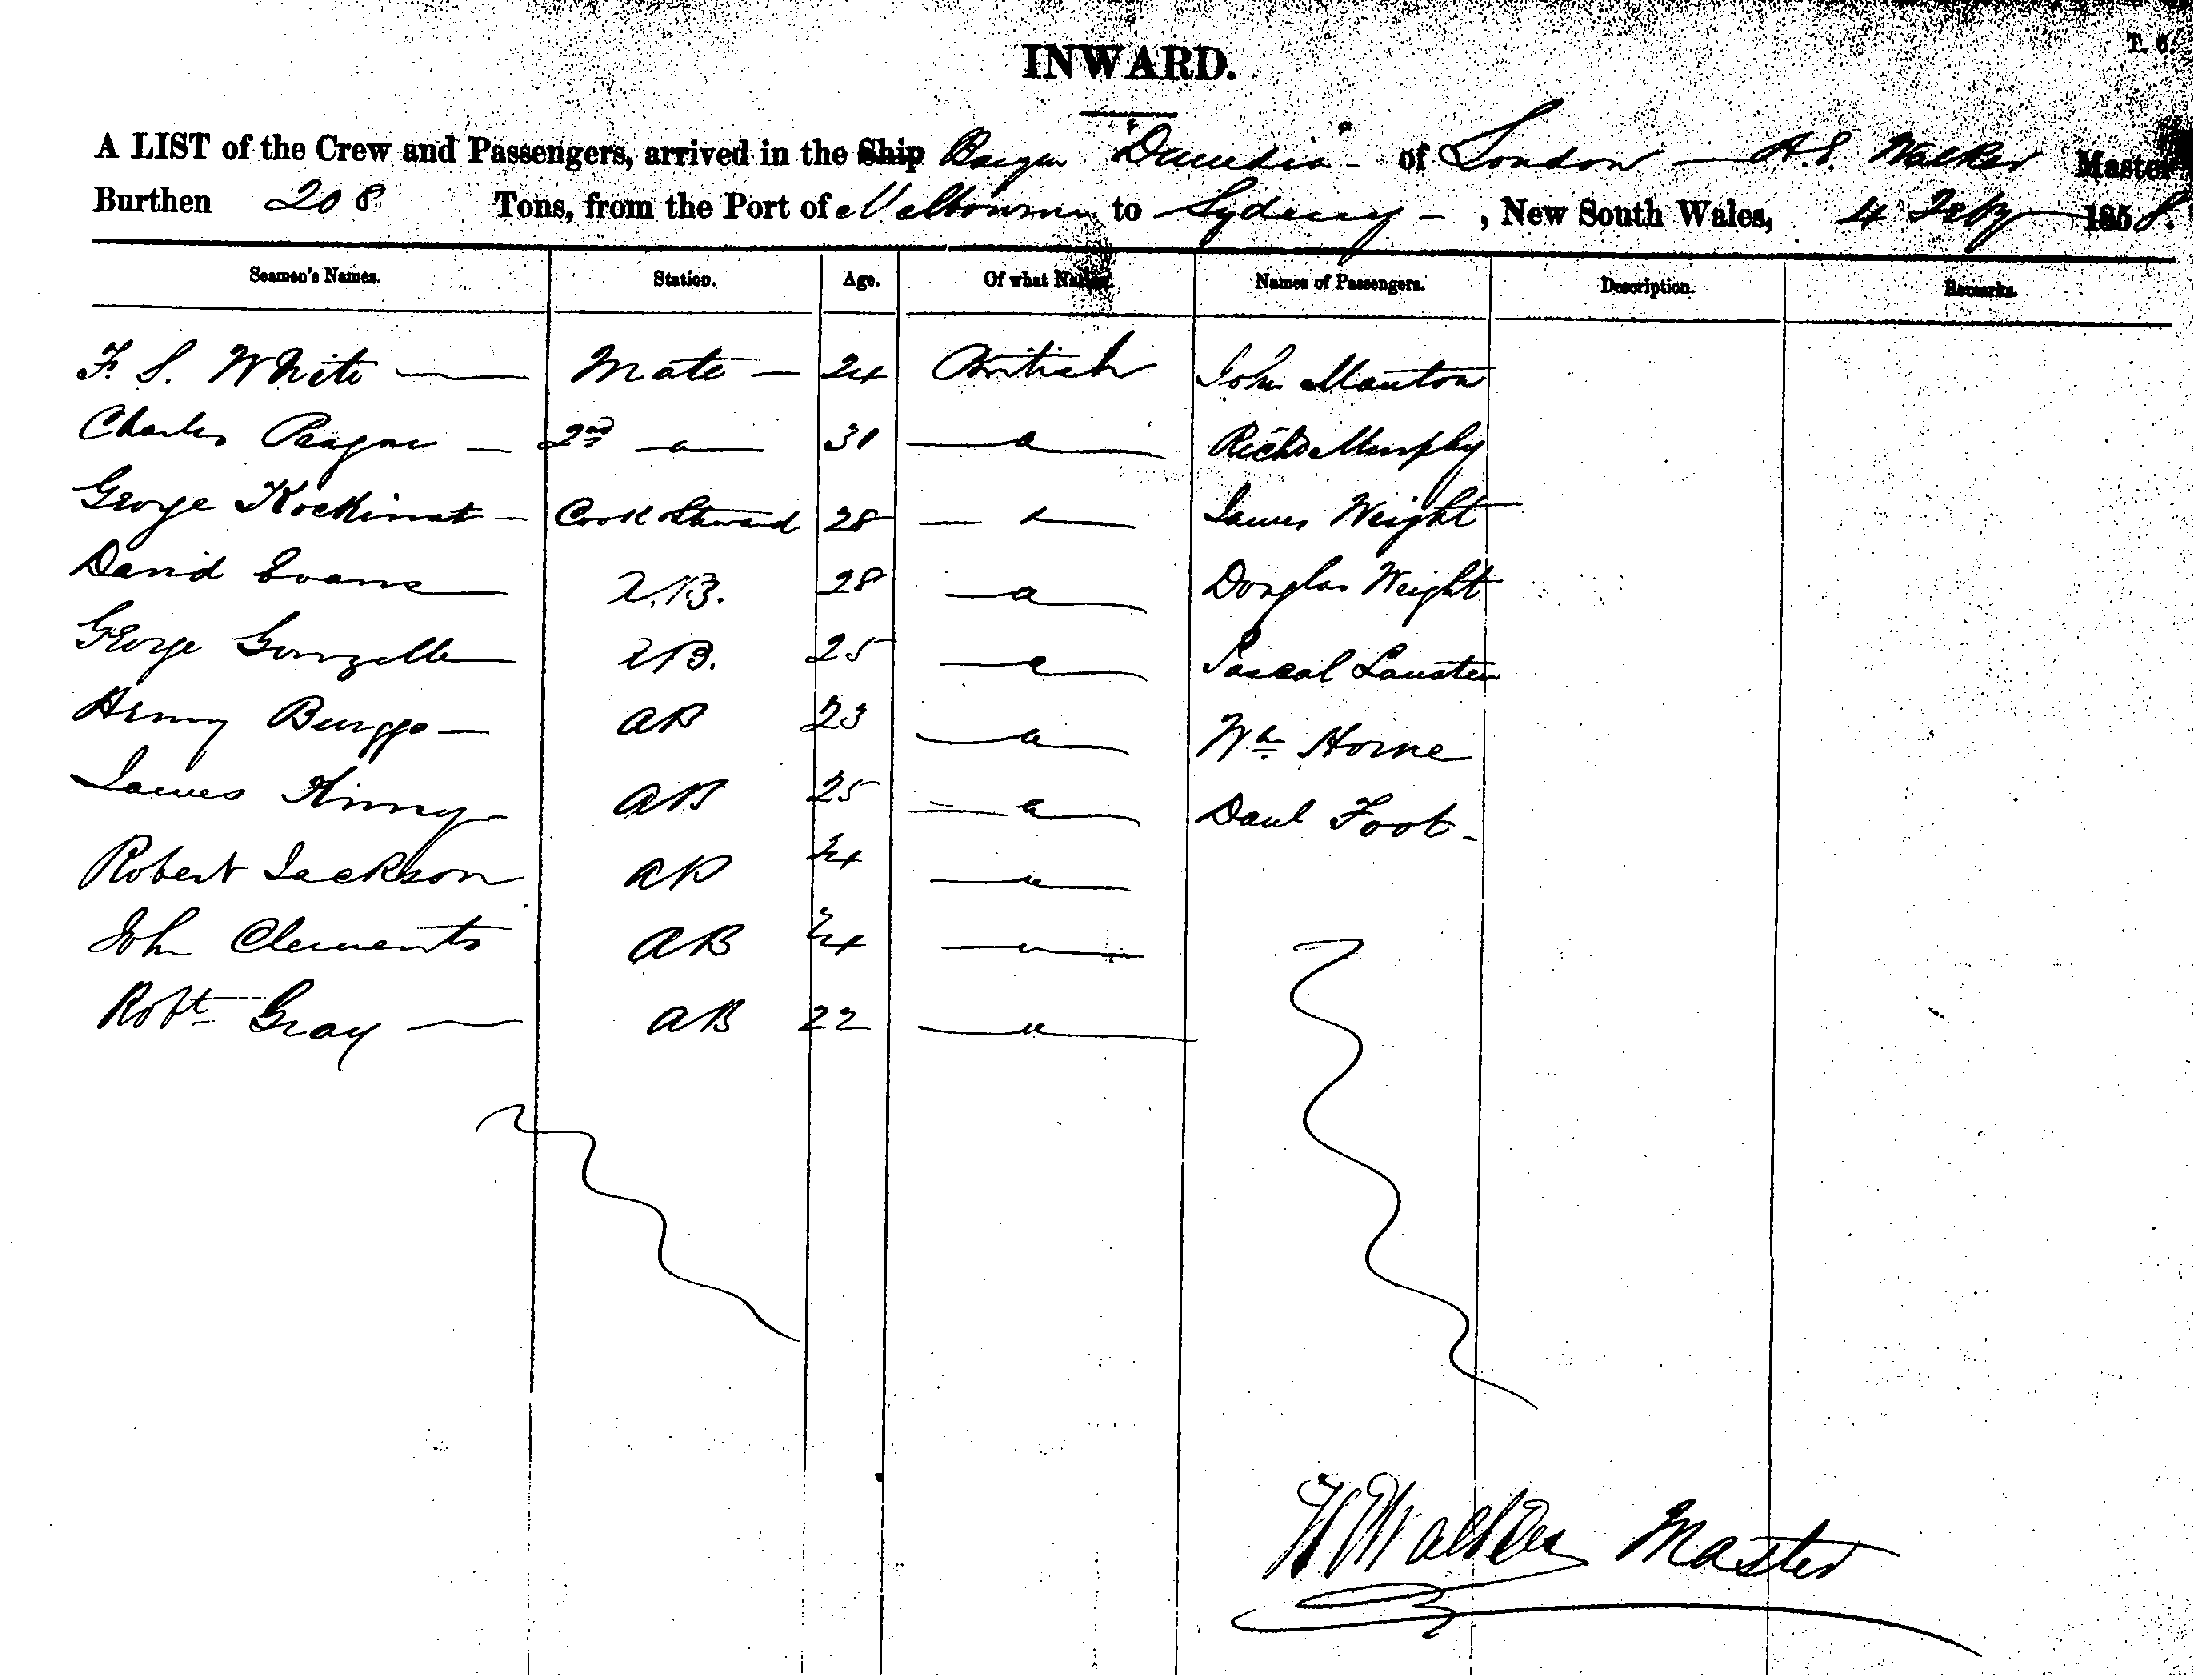 T. 6.
INWARD.
A LIST of the Crew and Passengers, arrived in the Ship of London — Walker Master
Burthen 208 Tons, from the Port of Melbourne to Sydney - , New South Wales, 4 Feby 1858.
Seamen's Names. Station. Age. Of what Nation. Names of Passengers. Description. Remarks.
F. S. White — Mate — 24 British John Manton
Charles — 2nd — 31 Richd Murphy
George — Cook & Steward 28 James Wright
David Evans A.B. 28 Douglas Wright
George AB. 25 Pascal
Henry — AB 23 Wm Horne
James AB 25 Danl Foot -
Robert Jackson AB 24
John Clements AB 24
Robt Gray — AB 22
Walker Master